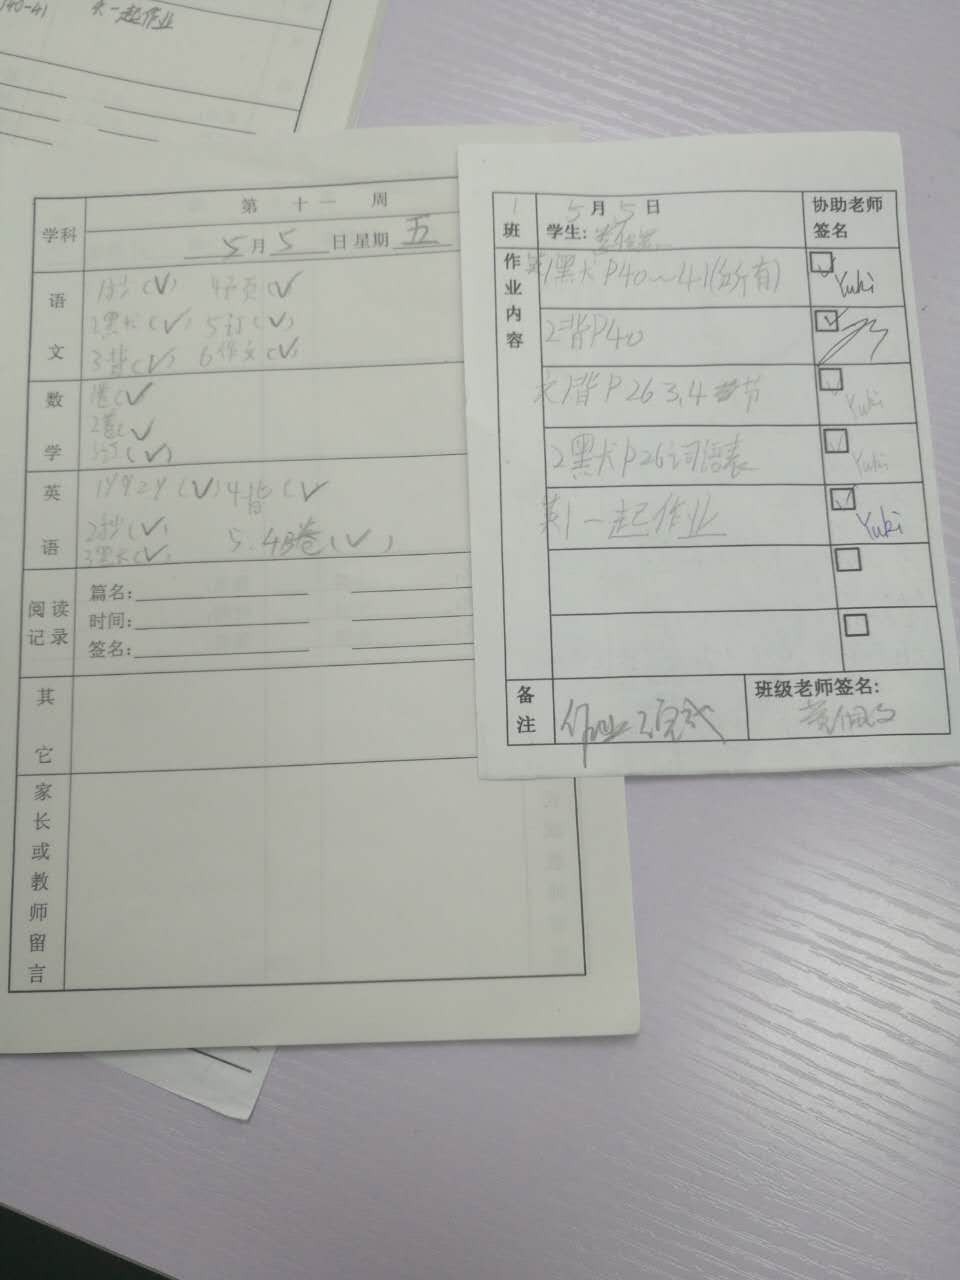 140-41 一起作业
第 十一 周
学科
5月5日 星期 五
语文
1抄(√) 4页(√
2黑犬(√) 5订(√)
3背(√) 6作文(√)
数学
1卷(√
2 √
3订(√)
英语
(√) 4背(√
2抄(√)
3黑犬(√) 5.4B卷(√)
阅读记录
篇名:
时间:
签名:
其它
家长或教师留言
1班
5月5日
学生:
协助老师签名
作业内容
英1黑犬P40～41(所有)
Yuki
2背P40
1背P26 3,4节
Yuki
2黑犬P26词语表
Yuki
英1一起作业
Yuki
备注
作业
班级老师签名:
黄佩